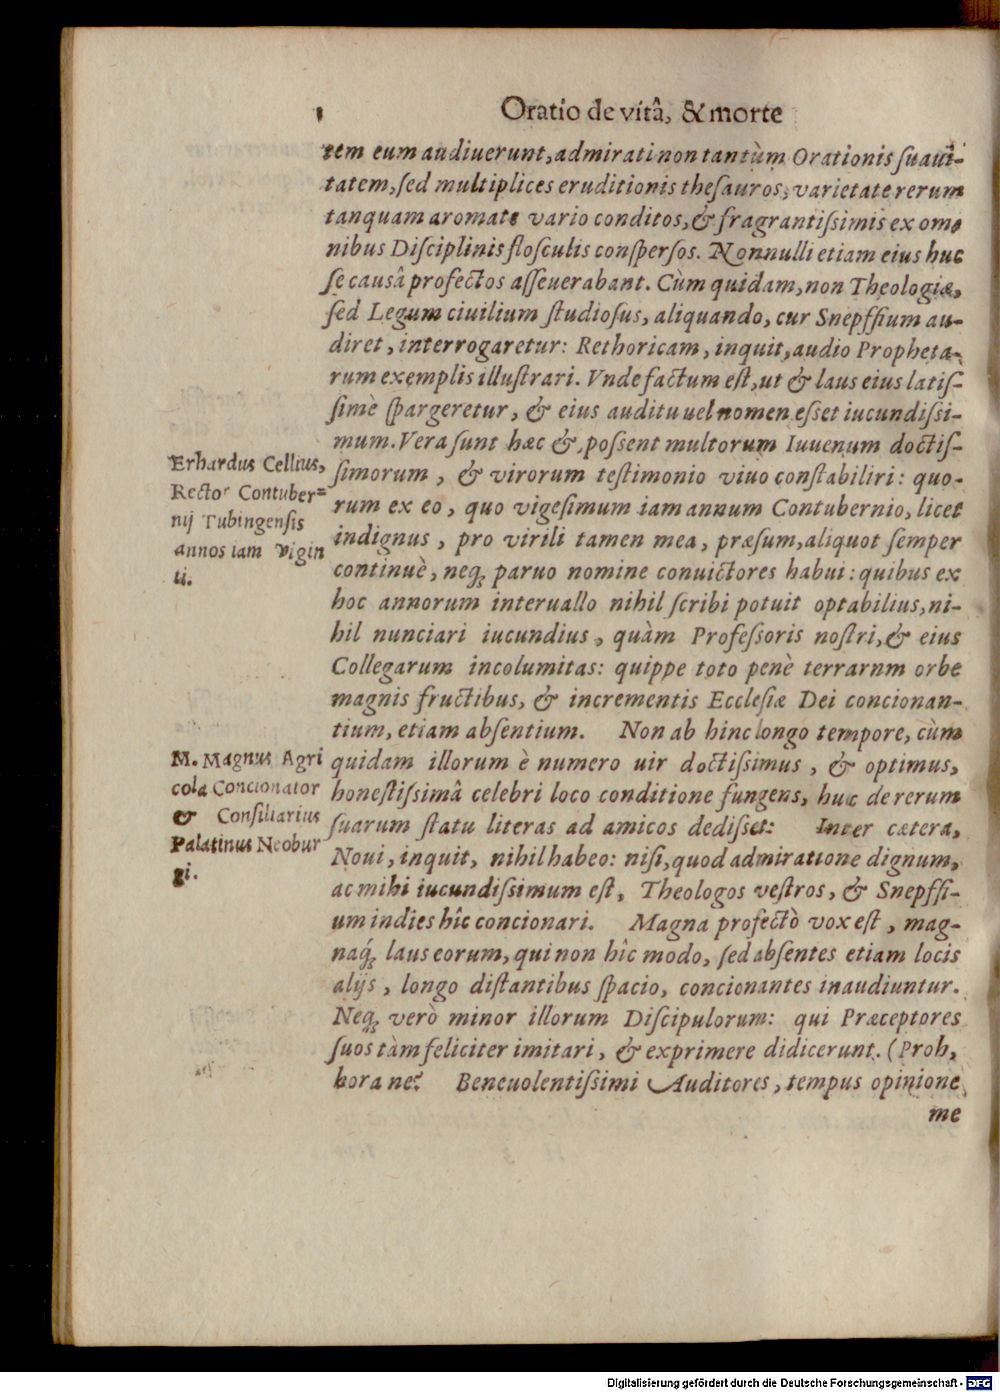 Oratio de vitâ, & morte
tem eum audiuerunt, admirati non tantùm Orationis suaui-
tatem, sed multiplices eruditionis thesauros, varietate rerum
tanquam aromate vario conditos, & fragrantissimis ex om-
nibus Disciplinis flosculis conspersos. Nonnulli etiam eius huc
se causâ profectos asseuerabant. Cùm quidam, non Theologiæ,
sed Legum ciuilium studiosus, aliquando, cur Snepffium au-
diret, interrogaretur: Rethoricam, inquit, audio Propheta-
rum exemplis illustrari. Vnde factum est, ut & laus eius latis-
simè spargeretur, & eius auditu uel nomen esset iucundissi-
mum. Vera sunt hæc &, possent multorum Iuuenum doctis-
simorum, & virorum testimonio viuo constabiliri: quo-
rum ex eo, quo vigesimum iam annum Contubernio, licet
indignus, pro virili tamen mea, præsum, aliquot semper
continuè, neq; paruo nomine conuictores habui: quibus ex
hoc annorum interuallo nihil scribi potuit optabilius, ni-
hil nunciari iucundius, quàm Professoris nostri, & eius
Collegarum incolumitas: quippe toto penè terrarnm orbe
magnis fructibus, & incrementis Ecclesiæ Dei concionan-
tium, etiam absentium. Non ab hinc longo tempore, cùm
quidam illorum è numero uir doctissimus, & optimus,
honestissimâ celebri loco conditione fungens, huc de rerum
suarum statu literas ad amicos dedisset: Inter cætera,
Noui, inquit, nihil habeo: nisi, quod admiratione dignum,
ac mihi iucundissimum est, Theologos vestros, & Snepffi-
um indies hîc concionari. Magna profectò vox est, mag-
naq́; laus eorum, qui non hîc modo, sed absentes etiam locis
alijs, longo distantibus spacio, concionantes inaudiuntur.
Neq; verò minor illorum Discipulorum: qui Præceptores
suos tàm feliciter imitari, & exprimere didicerunt. (Proh,
hora ne? Beneuolentissimi Auditores, tempus opinione
me
Erhardus Cellius,
Rector Contuber=
nij Tubingensis
annos iam vigin
ti.
M. Magnus Agri
cola Concionator
& Consiliarius
Palatinus Neobur
gi.
Digitalisierung gefördert durch die Deutsche Forschungsgemeinschaft - DFG